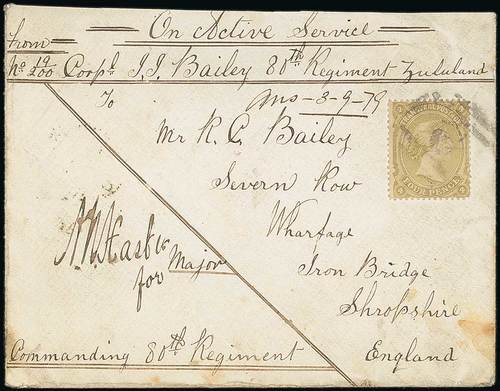 On Active Service
from
No 19/200 Corpl. J. J. Bailey 80th Regiment Zululand
To
Ans - 3-9-79
Mr R. C. Bailey
Severn Row
Wharfage
Iron Bridge
Shropshire
England
for Major
Commanding 80th Regiment
FOUR PENCE